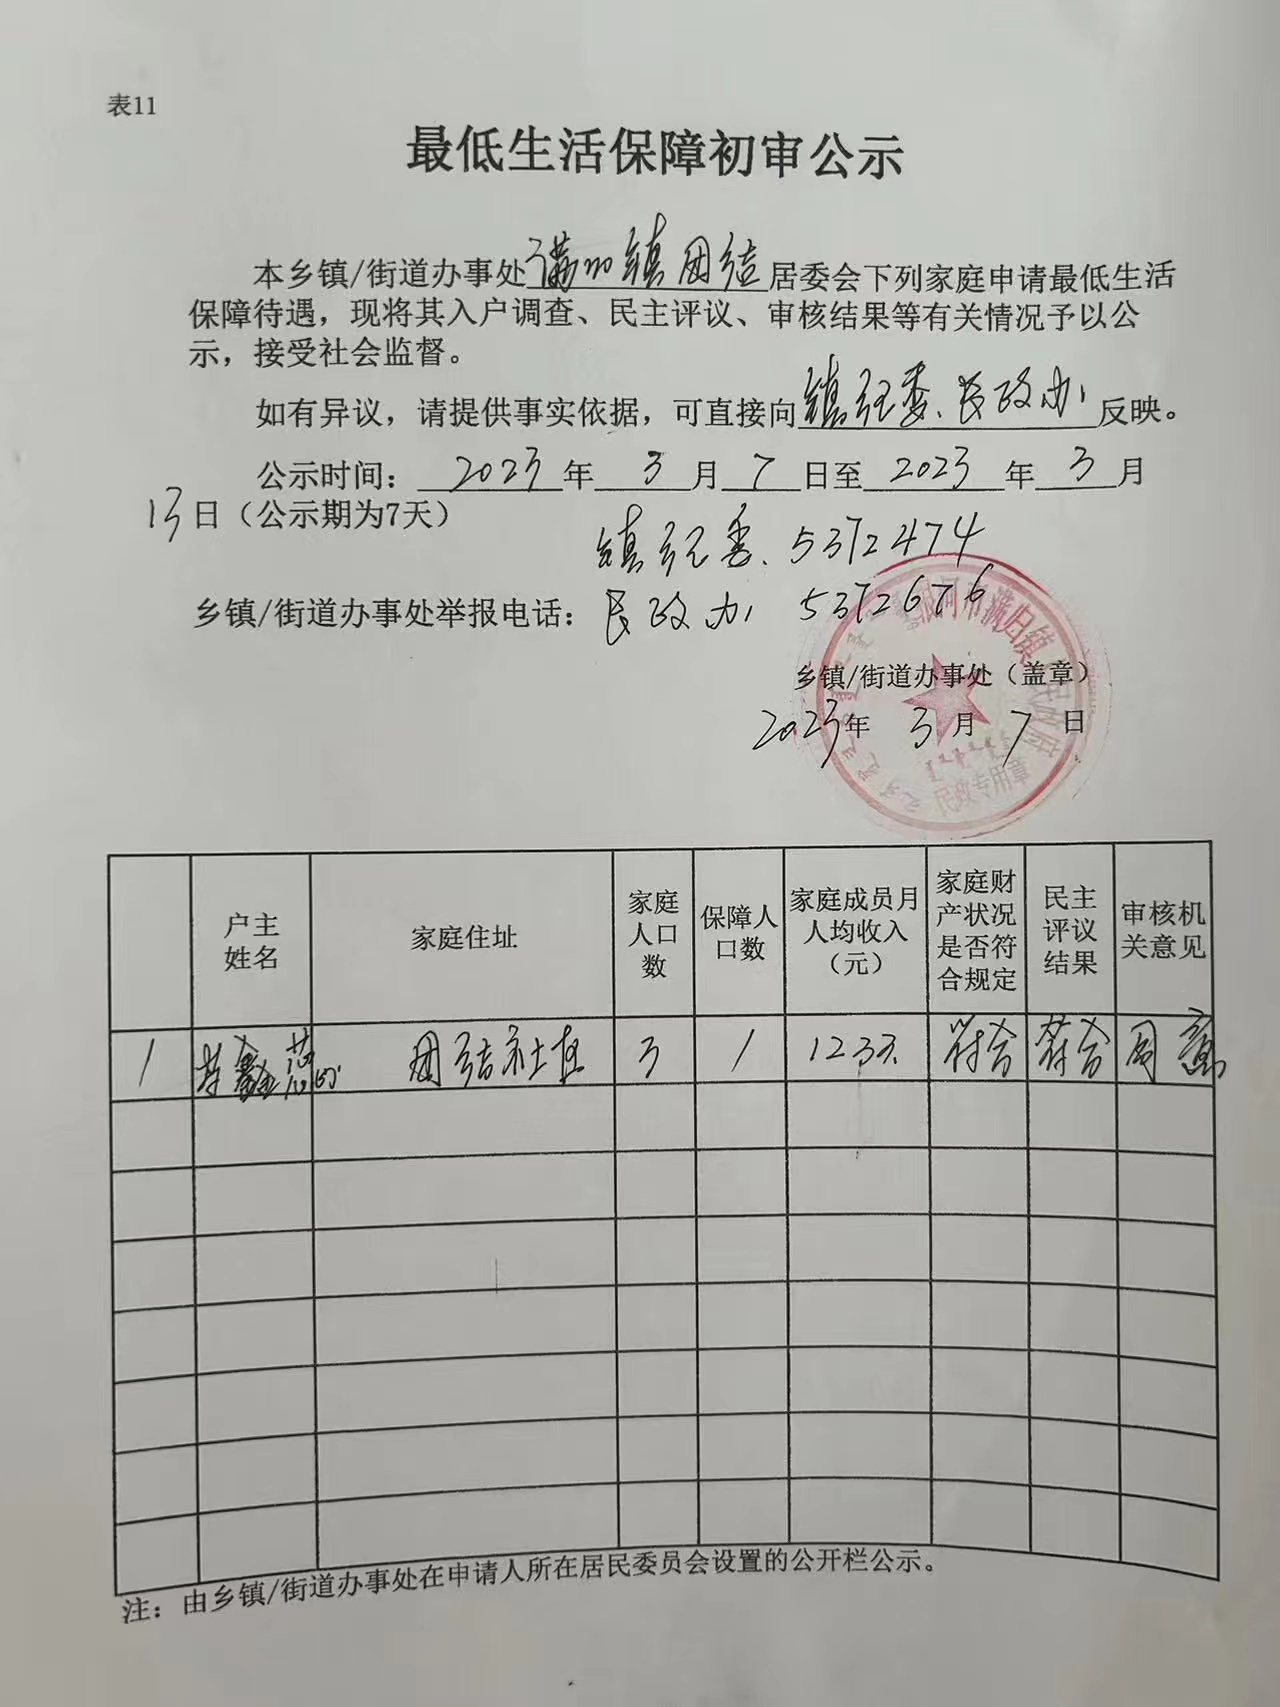 表11
最低生活保障初审公示
本乡镇/街道办事处满归镇团结居委会下列家庭申请最低生活
保障待遇，现将其入户调查、民主评议、审核结果等有关情况予以公
示，接受社会监督。
如有异议，请提供事实依据，可直接向镇纪委、民政办反映。
公示时间：2023年3月7日至2023年3月
13日（公示期为7天）
镇纪委、5372474
乡镇/街道办事处举报电话：民政办 5372676
根河市满归镇人民政府
乡镇/街道办事处（盖章）
2023年3月7日
民政专用章
户主姓名 家庭住址 家庭人口数 保障人口数 家庭成员月人均收入（元） 家庭财产状况是否符合规定 民主评议结果 审核机关意见
1 团结社区 3 1 符合 符合 同意
注：由乡镇/街道办事处在申请人所在居民委员会设置的公开栏公示。